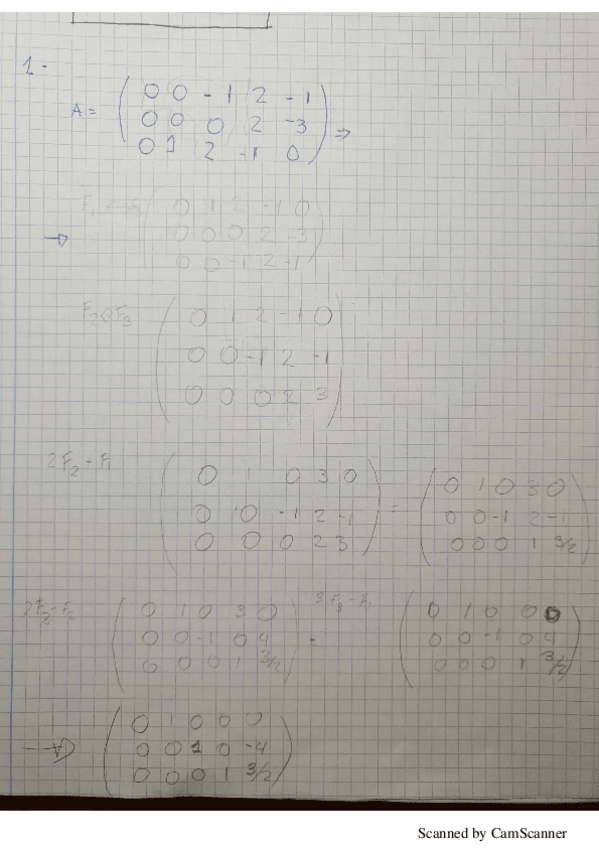 1.-
A = ( 0 0 -1 2 -1
0 0 0 2 -3
0 1 2 -1 0 ) ⇒
F₁ ↔ F₃ ( 0 1 2 -1 0
→ 0 0 0 2 -3
0 0 -1 2 -1 )
F₂ ↔ F₃ ( 0 1 2 -1 0
0 0 -1 2 -1
0 0 0 2 3 )
2F₂ + F₁ ( 0 1 0 3 0
0 0 -1 2 -1
0 0 0 2 3 ) = ( 0 1 0 3 0
0 0 -1 2 -1
0 0 0 1 3/2 )
( 0 1 0 3 0
0 0 -1 0 4
0 0 0 1 3/2 ) = 3F₃ - F₁ ( 0 1 0 0 0
0 0 -1 0 4
0 0 0 1 3/2 )
( 0 1 0 0 0
→ 0 0 1 0 -4
0 0 0 1 3/2 )
Scanned by CamScanner